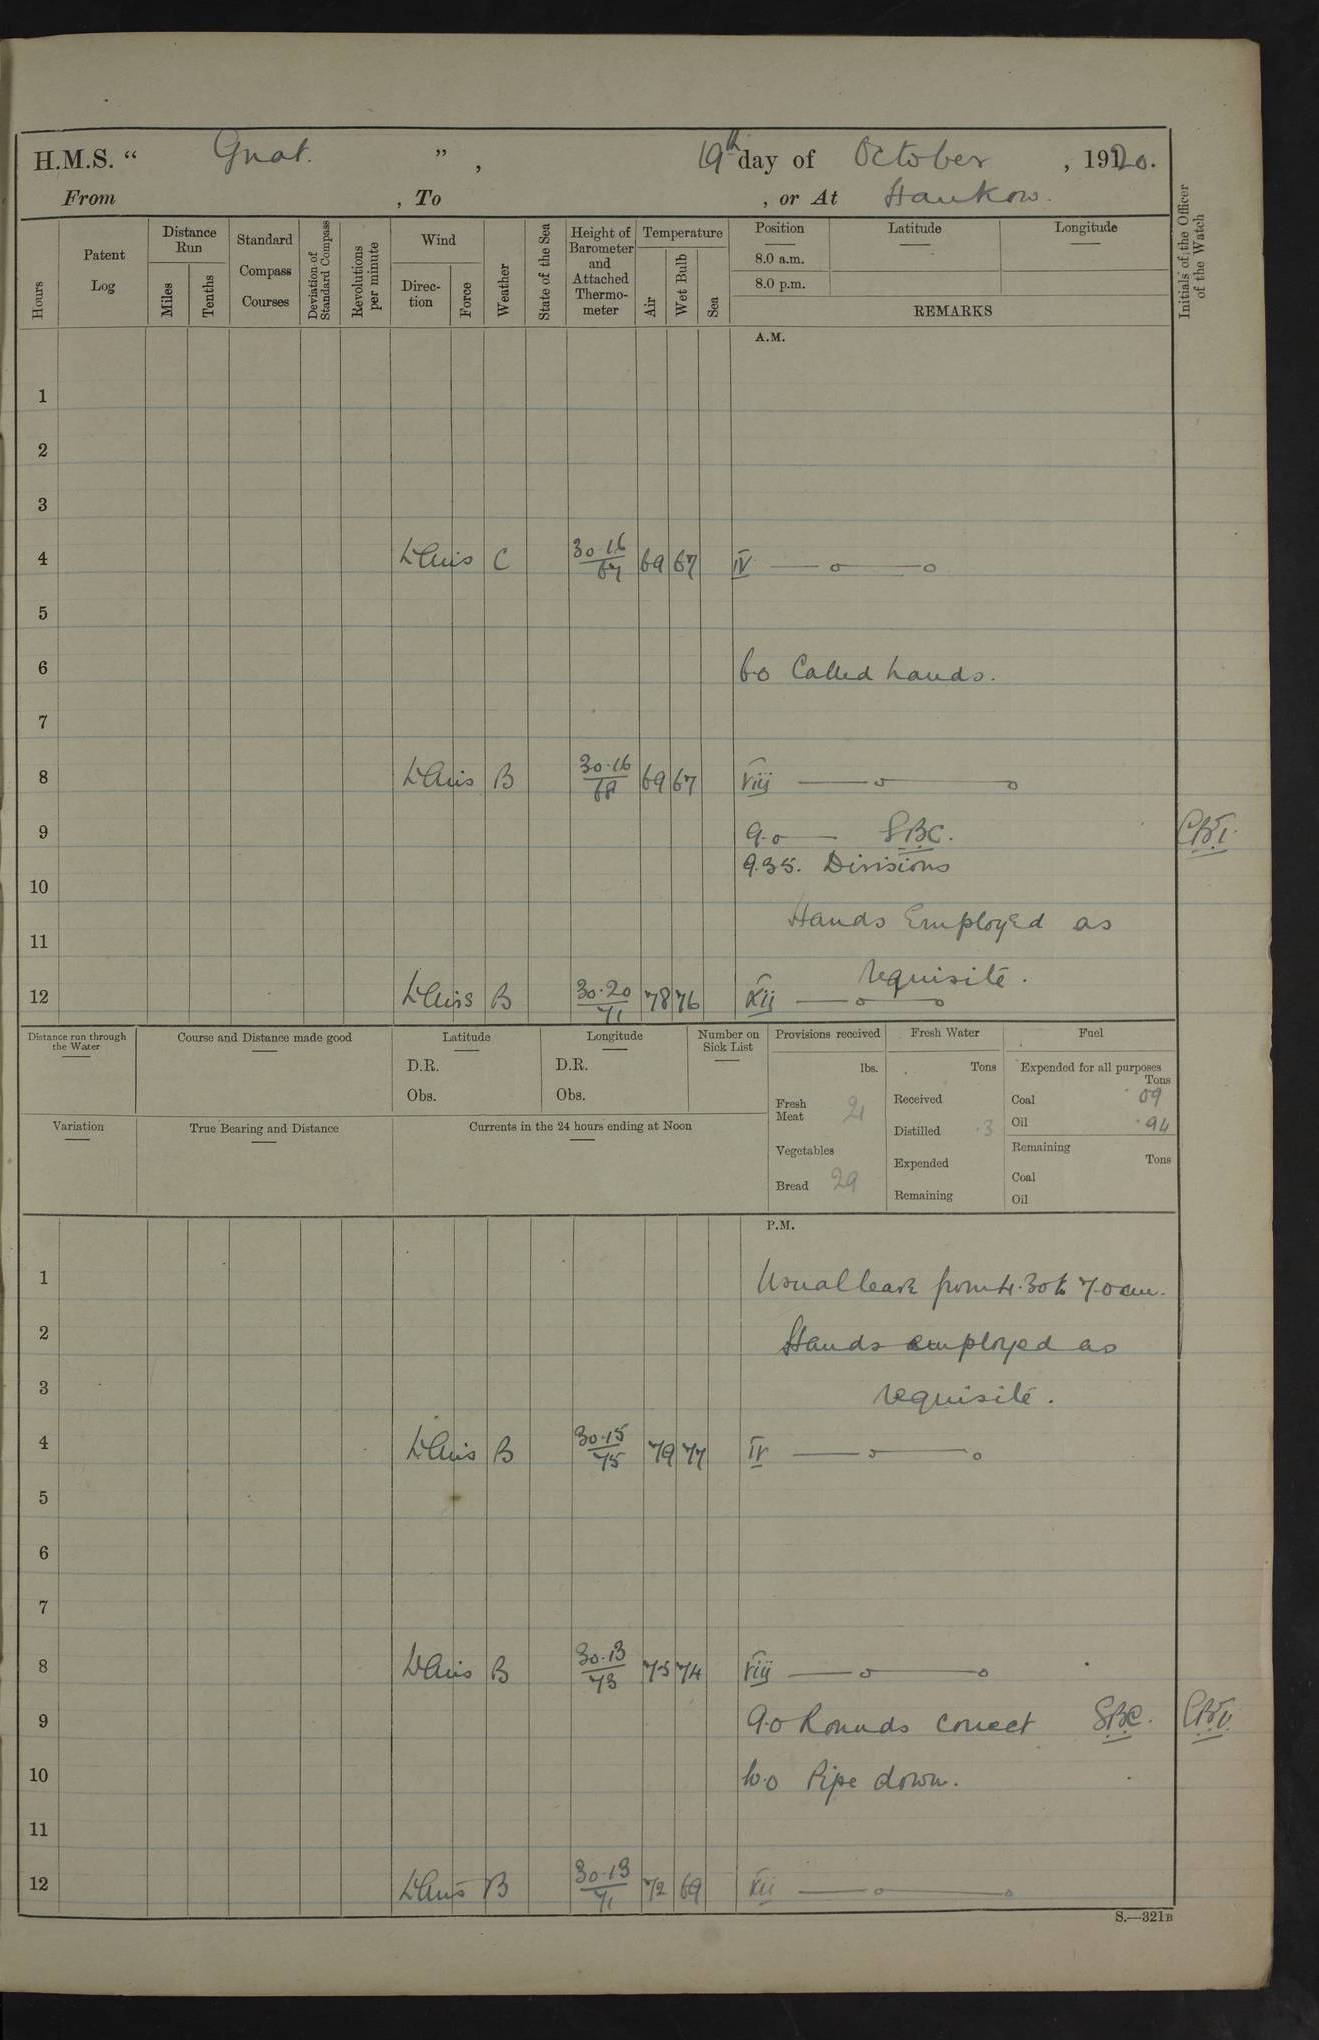 H.M.S. “ Gnat. ” , 19th day of October , 1920.
From , To , or At Hankow.
Hours
Patent Log
Distance Run
Miles
Tenths
Standard Compass Courses
Deviation of Standard Compass
Revolutions per minute
Wind
Direction
Force
Weather
State of the Sea
Height of Barometer and Attached Thermometer
Temperature
Air
Wet Bulb
Sea
Position
8.0 a.m.
8.0 p.m.
Latitude
Longitude
REMARKS
Initials of the Officer of the Watch
A.M.
1
2
3
4 C 30.16 67 69 67 IV
5
6 6.0 Called hands.
7
8 B 30.16 68 69 67 viij
9 9.0 SBC.
9.35. Divisions
10
Hands Employed as
11
requisite.
12 B 30.20 71 78 76 xij
Distance run through the Water
Course and Distance made good
Latitude
D.R.
Obs.
Longitude
D.R.
Obs.
Number on Sick List
Provisions received
lbs.
Fresh Meat 21
Vegetables
Bread 29
Fresh Water
Tons
Received
Distilled .3
Expended
Remaining
Fuel
Expended for all purposes
Tons
Coal 09
Oil .94
Remaining
Tons
Coal
Oil
Variation
True Bearing and Distance
Currents in the 24 hours ending at Noon
P.M.
1 Usual leave from 4.30 to 7.0 am.
2 Hands employed as
3 requisite.
4 B 30.15 75 79 77 IV
5
6
7
8 B 30.13 73 75 74 viij
9 9.0 Rounds correct SBC.
10 10.0 Pipe down.
11
12 B 30.13 71 72 69 xii
S.—321B